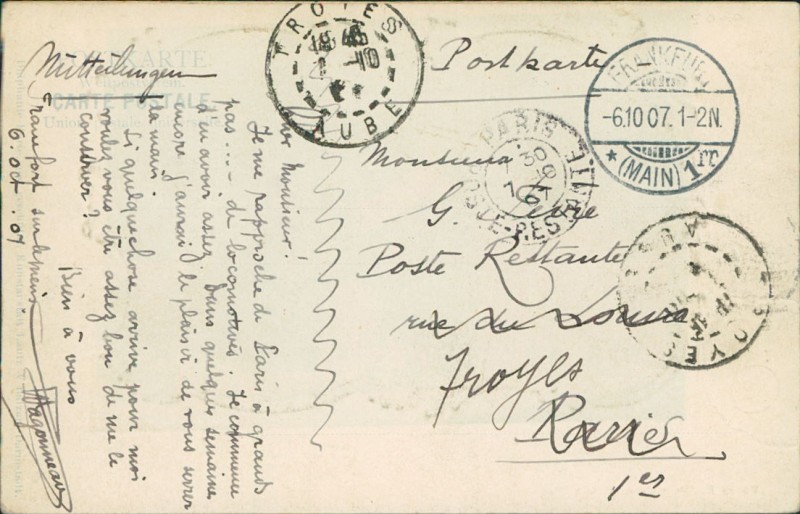 Mitteilungen
CARTE POSTALE
Monsieur!
Je me rapproche de Paris à grands
pas... de locomotives. Je commence
d'en avoir assez. Dans quelques semaines
encore j'aurai le plaisir de vous serrer
la main.
Si quelque chose arrive pour moi
voulez vous être assez bon de me le
conserver?
Bien à vous
Wagonneau
Francfort sur le mein
6. oct. 07
Postkarte
Monsieur
G.
Poste Restante
rue du Louvre
Troyes
Paris
1er
TROYES
AUBE
FRANKFURT
-6.10 07. 1-2N.
* (MAIN) 1
PARIS
30
TROYES
AUBE